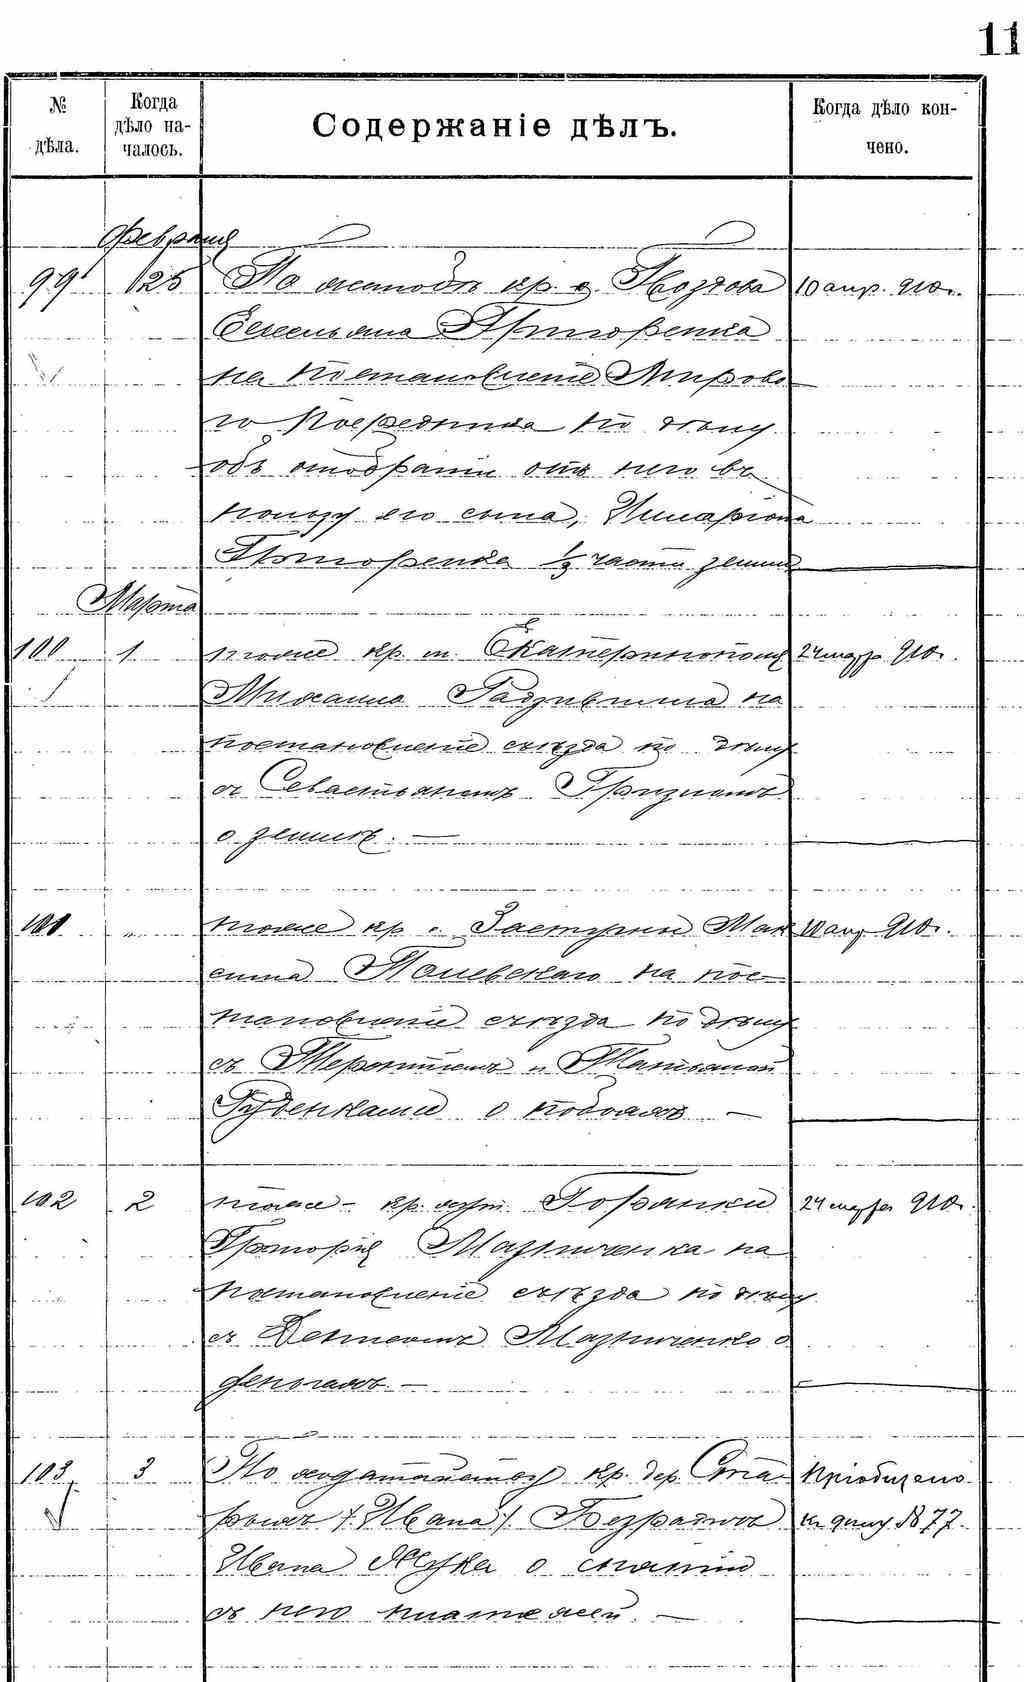 11
№ дѣла.
Когда дѣло началось.
Содержаніе дѣлъ.
Когда дѣло кончено.
Февраля
99 25 По жалобѣ кр. с. Гвоздова 10 апр. 910 г.
Емельяна Григоренка
на постановленіе Мирово
го Посредника по дѣлу
объ отобраніи отъ него въ
пользу его сына, Иларіона
Григоренка ⅓ части земли
Марта
100 1 тоже кр. м. Екатеринополя 24 мар. 910 г.
Михаила на
постановленіе съѣзда по дѣлу
съ Севастьяномъ
о землѣ. —
101 „ тоже кр. с. Макс 10 апр. 910 г.
сима на пос-
тановленіе съѣзда по дѣлу
съ Терентіемъ и Татьяной
Гуденками о побояхъ —
102 2 тоже - кр. хут. 24 марта 910 г.
Григорія Мазниченка на
постановленіе съѣзда по дѣлу
съ Мазниченко о
деньгахъ. —
103 3 По ходатайству кр. дер. Ста- Пріобщено
рыхъ /Ивана/ Безрадичъ къ дѣлу № 77.
Ивана о снятіи
съ него платежей. —